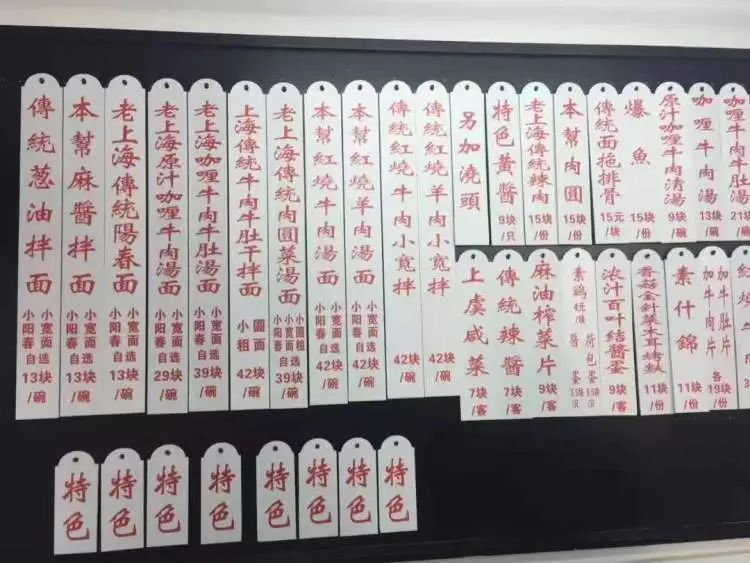 傳統葱油拌面
小宽面选
小阳春自
13块/碗
本幫麻醬拌面
小宽面选
小阳春自
13块/碗
老上海傳統陽春面
小宽面选
小阳春自
13块/碗
老上海原汁咖喱牛肉湯面
小宽面选
小阳春自
29块/碗
老上海咖喱牛肉牛肚湯面
小宽面选
小阳春自
39块/碗
上海傳統牛肉牛肚干拌面
圆面
小粗
42块/碗
老上海傳統肉圓菜湯面
小宽面选
小阳春自
39块/碗
本幫紅燒牛肉湯面
小宽面选
小阳春自
42块/碗
本幫紅燒羊肉湯面
小宽面选
小阳春自
42块/碗
傳統紅燒牛肉小寬拌
42块/碗
傳統紅燒羊肉小寬拌
42块/碗
另加澆頭
特色黄醬
9块/只
老上海傳統辣肉
15块/份
本幫肉圓
15块/份
傳統面拖排骨
15元/块
爆魚
15块/份
原汁咖喱牛肉清湯
9块/碗
咖喱牛肉湯
13块/碗
咖喱牛肉牛肚湯
21块/碗
上虞咸菜
7块/客
傳統辣醬
7块/客
麻油榨菜片
9块/客
素鷄
醬蛋
荷包蛋
浓汁百叶結醬蛋
9块/客
香菇金針菜木耳烤麩
11块/份
素什錦
11块/份
加牛肚片
加牛肉片
各19块/份
特色
特色
特色
特色
特色
特色
特色
特色